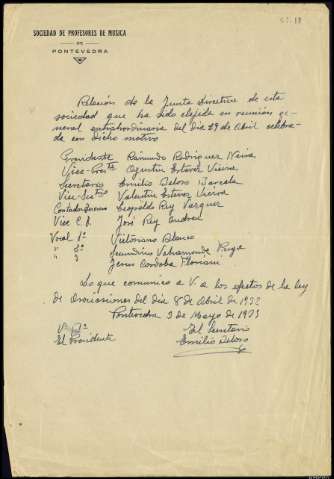 SOCIEDAD DE PROFESORES DE MUSICA
DE
PONTEVEDRA
Relación de la Junta Directiva de esta
sociedad que ha sido elejida en reunión ge-
neral extraordinaria del dia 29 de Abril celebra-
da en dicho motivo
Presidente Raimundo Rodriguez Neira
Vice-Pres^te Agustin Esteves Vieira
Secretario Emilio Beloso
Vice-Sec^rio Valentin Esteves Vieira
Contador Leopoldo Rey Vazquez
Vice C. José Rey
Vocal 1º Victoriano Blanco
" 2º Secundino Vahamonde
" 3 Jesus Cordoba
Lo que comunico a V. a los efectos de la ley
de Asociaciones del dia 8 de Abril de 1932
Pontevedra 3 de Mayo de 1933
Vº Bº El Secretario
El Presidente Emilio Beloso